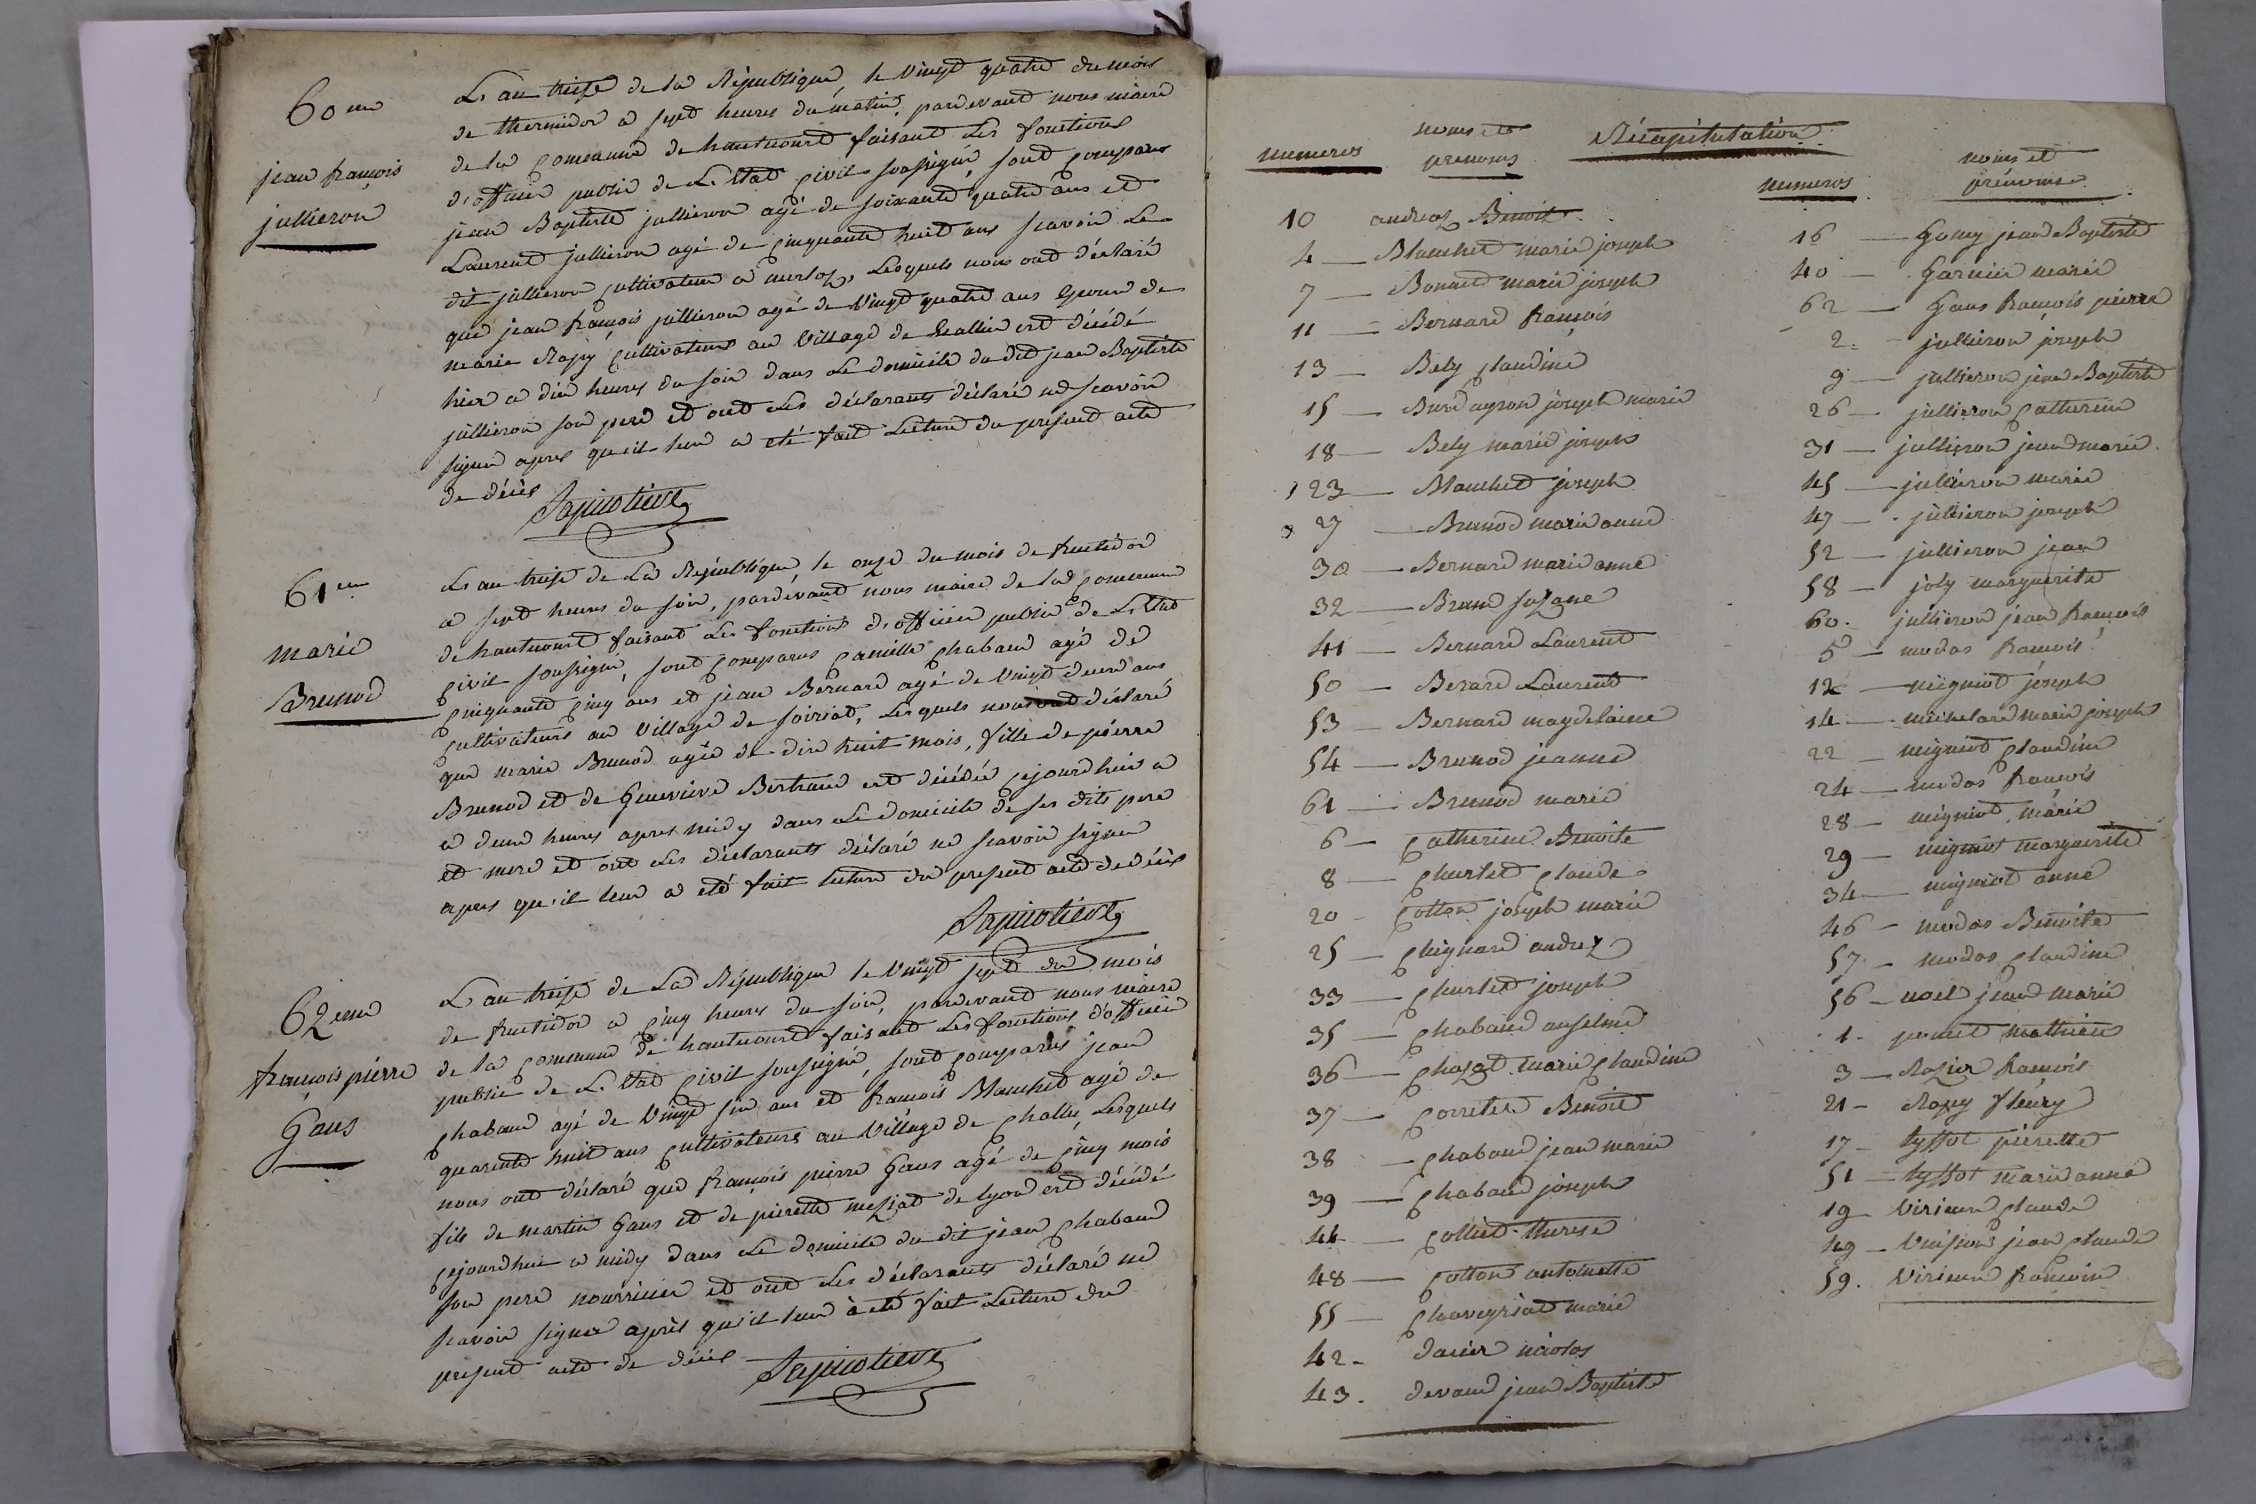 60 me
jean françois
jullieron
L'an treize de la République, le vingt quatre du mois
de thermidor a sept heures du matin, pardevant nous maire
de la Commune de hautecourt faisant les fonctions
d'officier public de L'Etat Civil soussigné, sont Comparus
jean Baptiste jullieron agé de soixante quatre ans et
Laurent jullieron agé de Cinquante huit ans scavoir Le
dit jullieron Cultivateur a merloz, Lesquels nous ont déclaré
que jean françois jullieron agé de vingt quatre ans Epoux de
marie Rapy Cultivateurs au village de Challie est décédé
hier a dix heures du soir dans Le domicile du dit jean Baptiste
jullieron son pere et ont Les déclarants déclaré ne scavoir
signer apres qu'il leur a eté fait Lecture du present acte
de décès
61 em
marie
Brunod
L'an treize de La République, le onze du mois de fructidor
a sept heures du soir, pardevant nous maire de la Commune
de hautecourt faisant Les fonctions d'officier public de L'Etat
Civil soussigné, sont Comparus Camille Chabaud agé de
Cinquante Cinq ans et jean Bernard agé de vingt deux ans
Cultivateurs au village de soiriat, Lesquels nous ont déclaré
que marie Brunod agée de dix huit mois, fille de pierre
Brunod et de Genevieve Bertrand est décédée Cejourdhui a
a deux heures apres midy dans Le domicile de ses dits pere
et mere et ont Les déclarants déclaré ne scavoir signer
apres qu'il leur a eté fait lecture du present acte de décès
62 eme
françois pierre
Gaus
L'an treize de La République le vingt sept du mois
de fructidor a Cinq heures du soir, pardevant nous maire
de la Commune de hautecourt faisant Les fonctions d'officier
public de L'Etat Civil soussigné, sont Comparus jean
Chabaud agé de vingt six ans et françois Blanchet agé de
quarente huit ans Cultivateurs au village de Challie, Lesquels
nous ont déclaré que françois pierre Gaus agé de Cinq mois
fils de martin Gaus et de pierette meziat de Lyon est décédé
Cejourdhui a midy dans Le domicile du dit jean Chabaud
son pere nourricier et ont Les déclarants déclaré ne
scavoir signer apres qu'il leur à eté fait Lecture du
present acte de décès
Récapitulation
numeros
noms et
prenoms
10 andreaz Benoit
4 Blanchet marie joseph
7 Bonnet marie joseph
11 Bernard françois
13 Bely Claudine
15 joseph marie
18 Bely marie joseph
23 Blanchet joseph
27 Brunod marie anne
30 Bernard marie anne
32 Brun suzane
41 Bernard Laurent
50 Berard Laurent
53 Bernard magdelaine
54 Brunod jeanne
61 Brunod marie
6 Catherine Benoite
8 Churlet Claude
20 Cotton joseph marie
25 Chignard andrez
33 Churlet joseph
35 Chabaud anselme
36 Chazat marie Claudine
37 Corretel Benoit
38 Chabaud jean marie
39 Chabaud joseph
44 Colliet therese
48 Cotton antoinette
55 Chaveyriat marie
42 Dacier nicolas
43 Devaud jean Baptiste
numeros
noms et
prénoms
16 Gomy jean Baptiste
40 Garnier marie
62 Gaus françois pierre
2 jullieron joseph
9 jullieron jean Baptiste
26 jullieron Catherine
31 jullieron jean marie
45 jullieron marie
47 jullieron joseph
52 jullieron jean
58 joly marguerite
60 jullieron jean françois
5 modas françois
12 migniot joseph
14 michelard marie joseph
22 migniot Claudine
24 modas françois
28 migniot marie
29 migniot marguerite
34 migniot anne
46 modas Benoite
57 modas Claudine
56 noel jean marie
1 poncet mathieu
3 Rozier françois
21 Rapy fleury
17 tyssot pierette
51 tyssot marie anne
19 Virieux Claude
49 Vuisson jean Claude
59 Virieux françoise